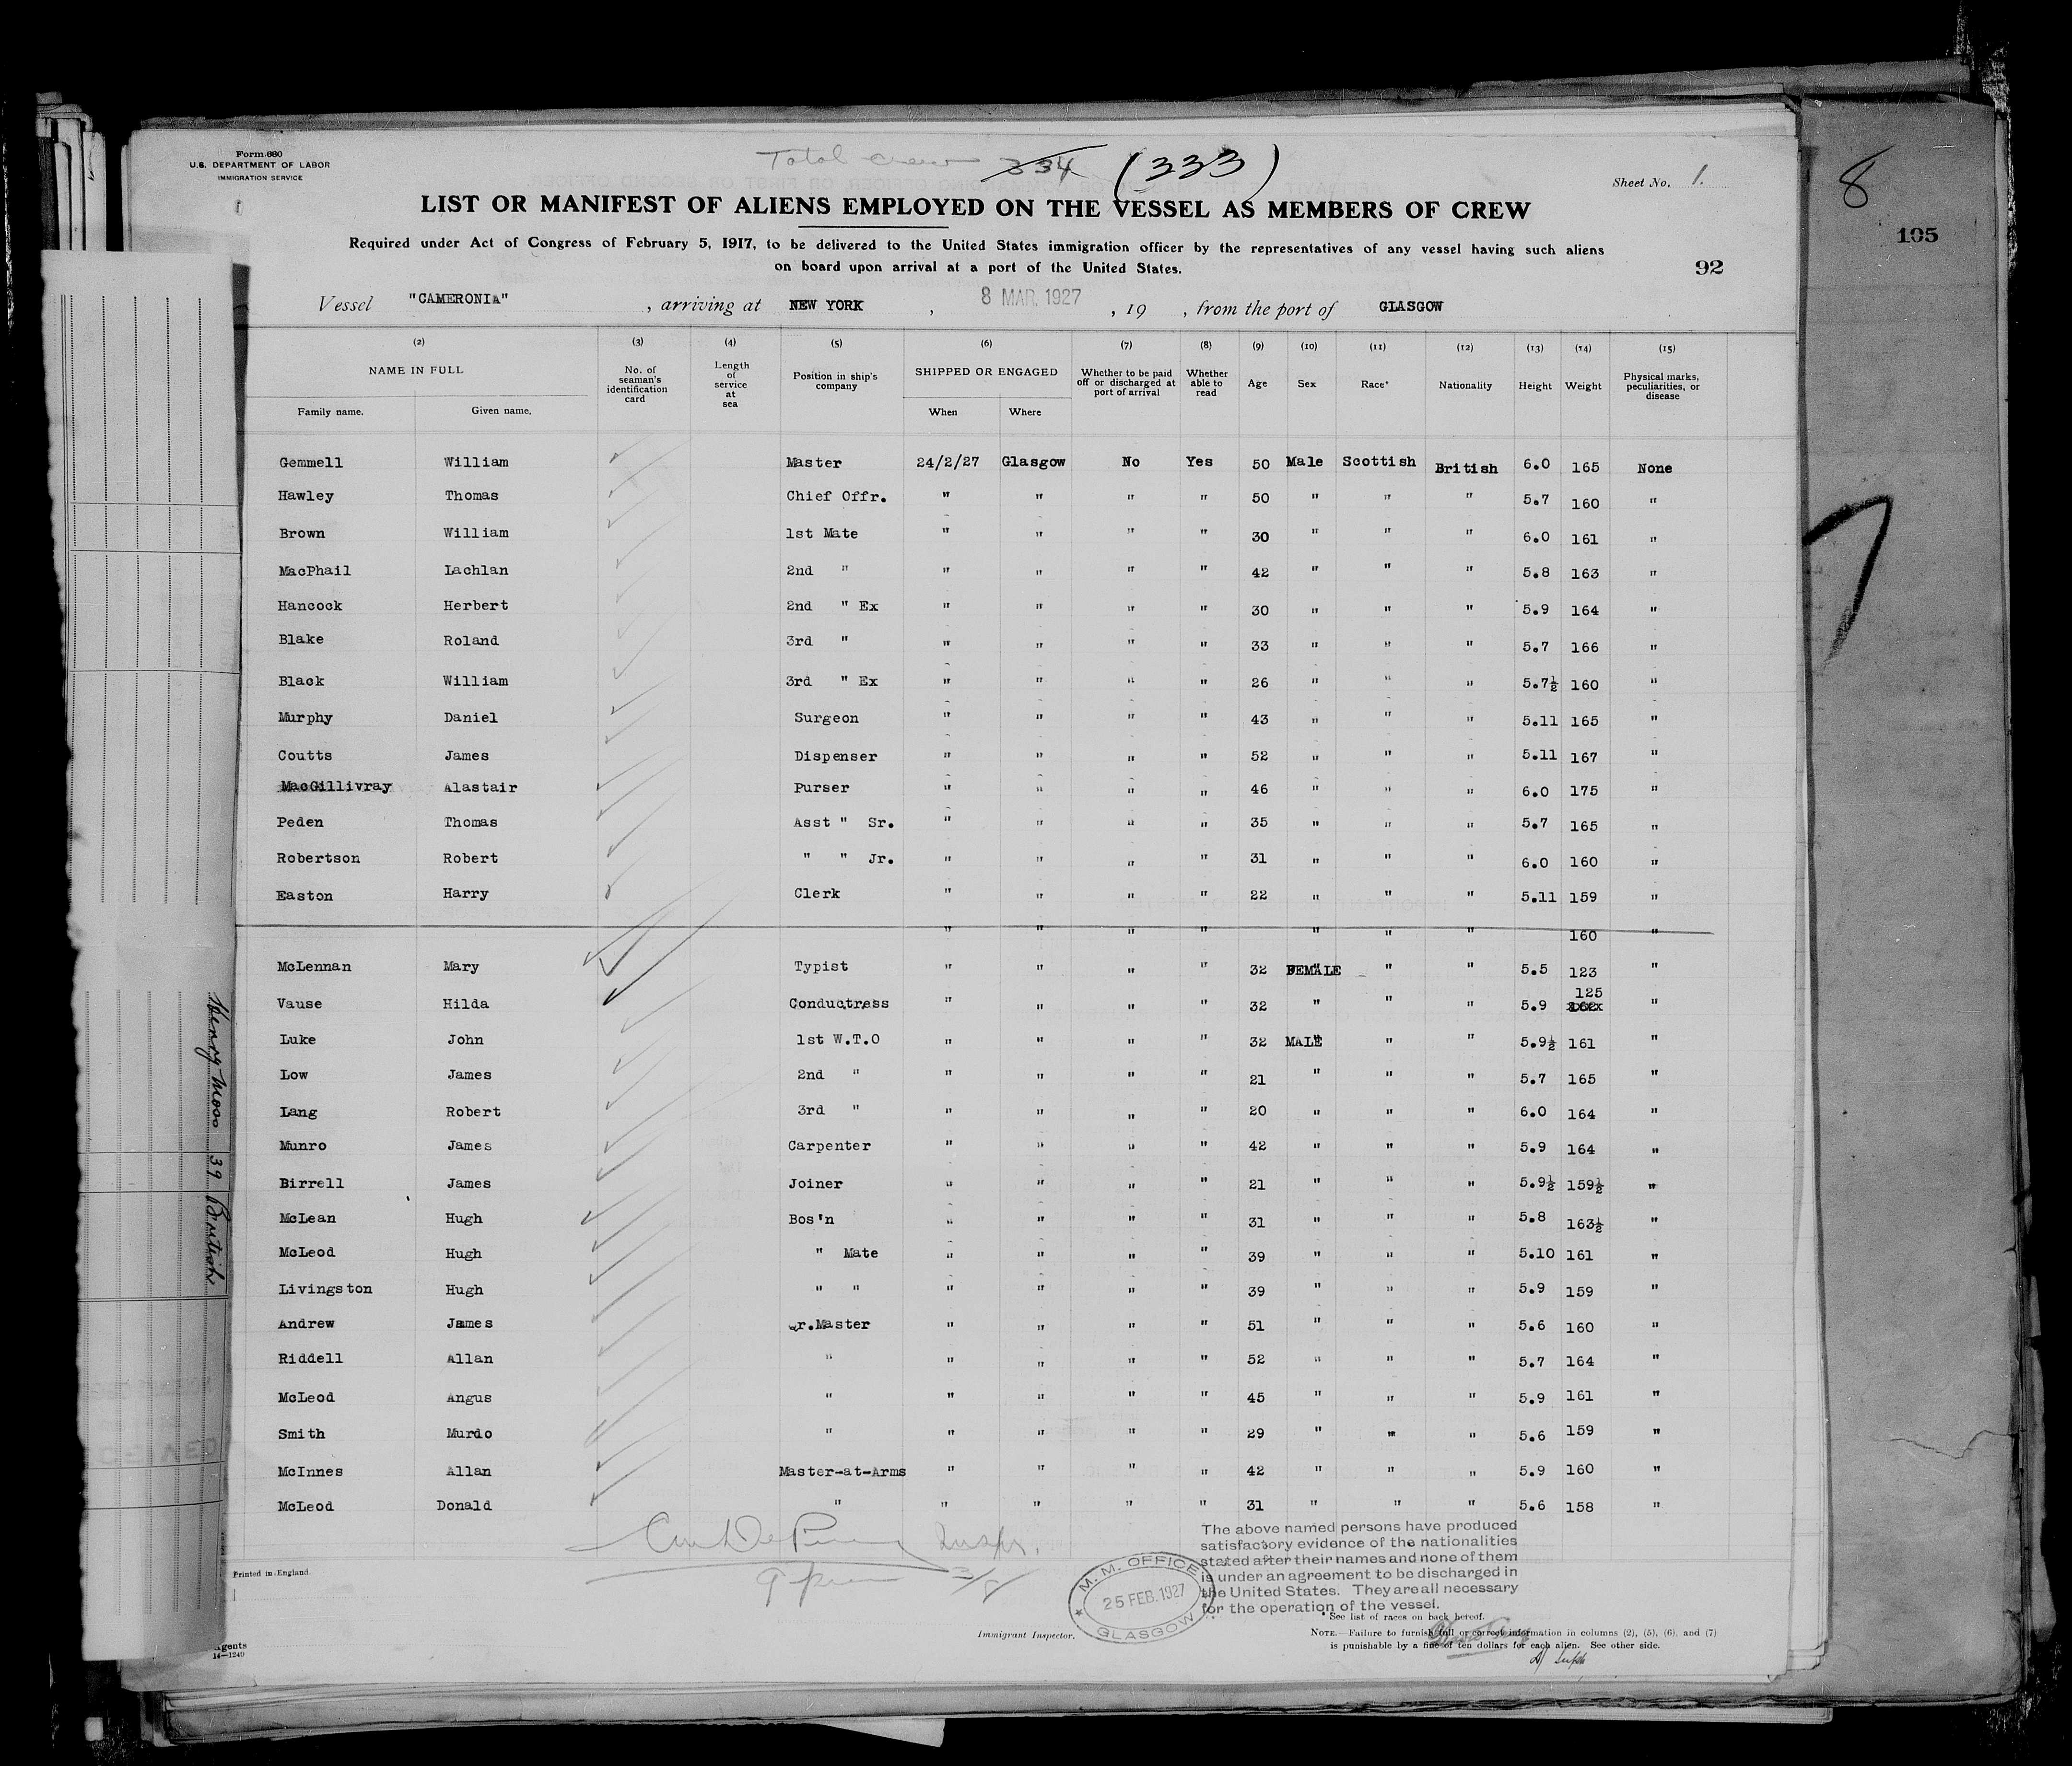 Form 680
U.S. DEPARTMENT OF LABOR
IMMIGRATION SERVICE
Total crew 334 (333)
Sheet No. 1.
8
105
LIST OR MANIFEST OF ALIENS EMPLOYED ON THE VESSEL AS MEMBERS OF CREW
Required under Act of Congress of February 5, 1917, to be delivered to the United States immigration officer by the representatives of any vessel having such aliens
on board upon arrival at a port of the United States.
92
Vessel "CAMERONIA" , arriving at NEW YORK , 8 MAR. 1927 , 19 , from the port of GLASGOW
(2) (3) (4) (5) (6) (7) (8) (9) (10) (11) (12) (13) (14) (15)
NAME IN FULL No. of seaman's identification card Length of service at sea Position in ship's company SHIPPED OR ENGAGED Whether to be paid off or discharged at port of arrival Whether able to read Age Sex Race* Nationality Height Weight Physical marks, peculiarities, or disease
Family name. Given name. When Where
Gemmell William Master 24/2/27 Glasgow No Yes 50 Male Scottish British 6.0 165 None
Hawley Thomas Chief Offr. " " " " 50 " " " 5.7 160 "
Brown William 1st Mate " " " " 30 " " " 6.0 161 "
MacPhail Lachlan 2nd " " " " " 42 " " " 5.8 163 "
Hancock Herbert 2nd " Ex " " " " 30 " " " 5.9 164 "
Blake Roland 3rd " " " " " 33 " " " 5.7 166 "
Black William 3rd " Ex " " " " 26 " " " 5.7½ 160 "
Murphy Daniel Surgeon " " " " 43 " " " 5.11 165 "
Coutts James Dispenser " " " " 52 " " " 5.11 167 "
MacGillivray Alastair Purser " " " " 46 " " " 6.0 175 "
Peden Thomas Asst " Sr. " " " " 35 " " " 5.7 165 "
Robertson Robert " " Jr. " " " " 31 " " " 6.0 160 "
Easton Harry Clerk " " " " 22 " " " 5.11 159 "
" " " " " " " 160 "
McLennan Mary Typist " " " " 32 FEMALE " " 5.5 123 "
Vause Hilda Conductress " " " " 32 " " " 5.9 125 162x "
Luke John 1st W.T.O " " " " 32 MALE " " 5.9½ 161 "
Low James 2nd " " " " " 21 " " " 5.7 165 "
Lang Robert 3rd " " " " " 20 " " " 6.0 164 "
Munro James Carpenter " " " " 42 " " " 5.9 164 "
Birrell James Joiner " " " " 21 " " " 5.9½ 159½ "
McLean Hugh Bos'n " " " " 31 " " " 5.8 163½ "
McLeod Hugh " Mate " " " " 39 " " " 5.10 161 "
Livingston Hugh " " " " " " 39 " " " 5.9 159 "
Andrew James Qr.Master " " " " 51 " " " 5.6 160 "
Riddell Allan " " " " " 52 " " " 5.7 164 "
McLeod Angus " " " " " 45 " " " 5.9 161 "
Smith Murdo " " " " " 29 " " " 5.6 159 "
McInnes Allan Master-at-Arms " " " " 42 " " " 5.9 160 "
McLeod Donald " " " " " 31 " " " 5.6 158 "
Henry Moss 39 British
Inspr.
3/8
The above named persons have produced
satisfactory evidence of the nationalities
stated after their names and none of them
is under an agreement to be discharged in
the United States. They are all necessary
for the operation of the vessel.
M. M. OFFICE
25 FEB. 1927
GLASGOW
Printed in England
*See list of races on back hereof.
Immigrant Inspector.
NOTE.—Failure to furnish full or correct information in columns (2), (5), (6), and (7)
is punishable by a fine of ten dollars for each alien. See other side.
Agents
14—1240